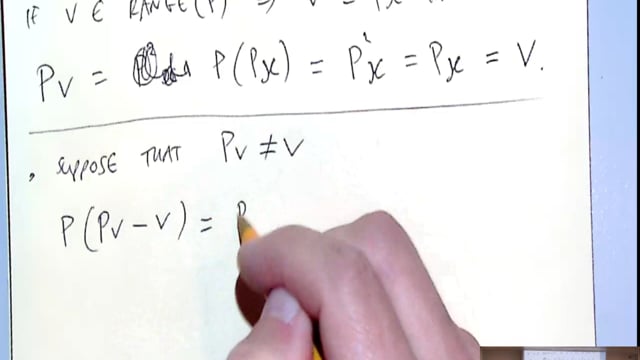 IF V ∈ RANGE(P) ⇒ V = Px
Pv = P(Px) = P²x = Px = V.
, SUPPOSE THAT Pv ≠ V
P(Pv − v) = P